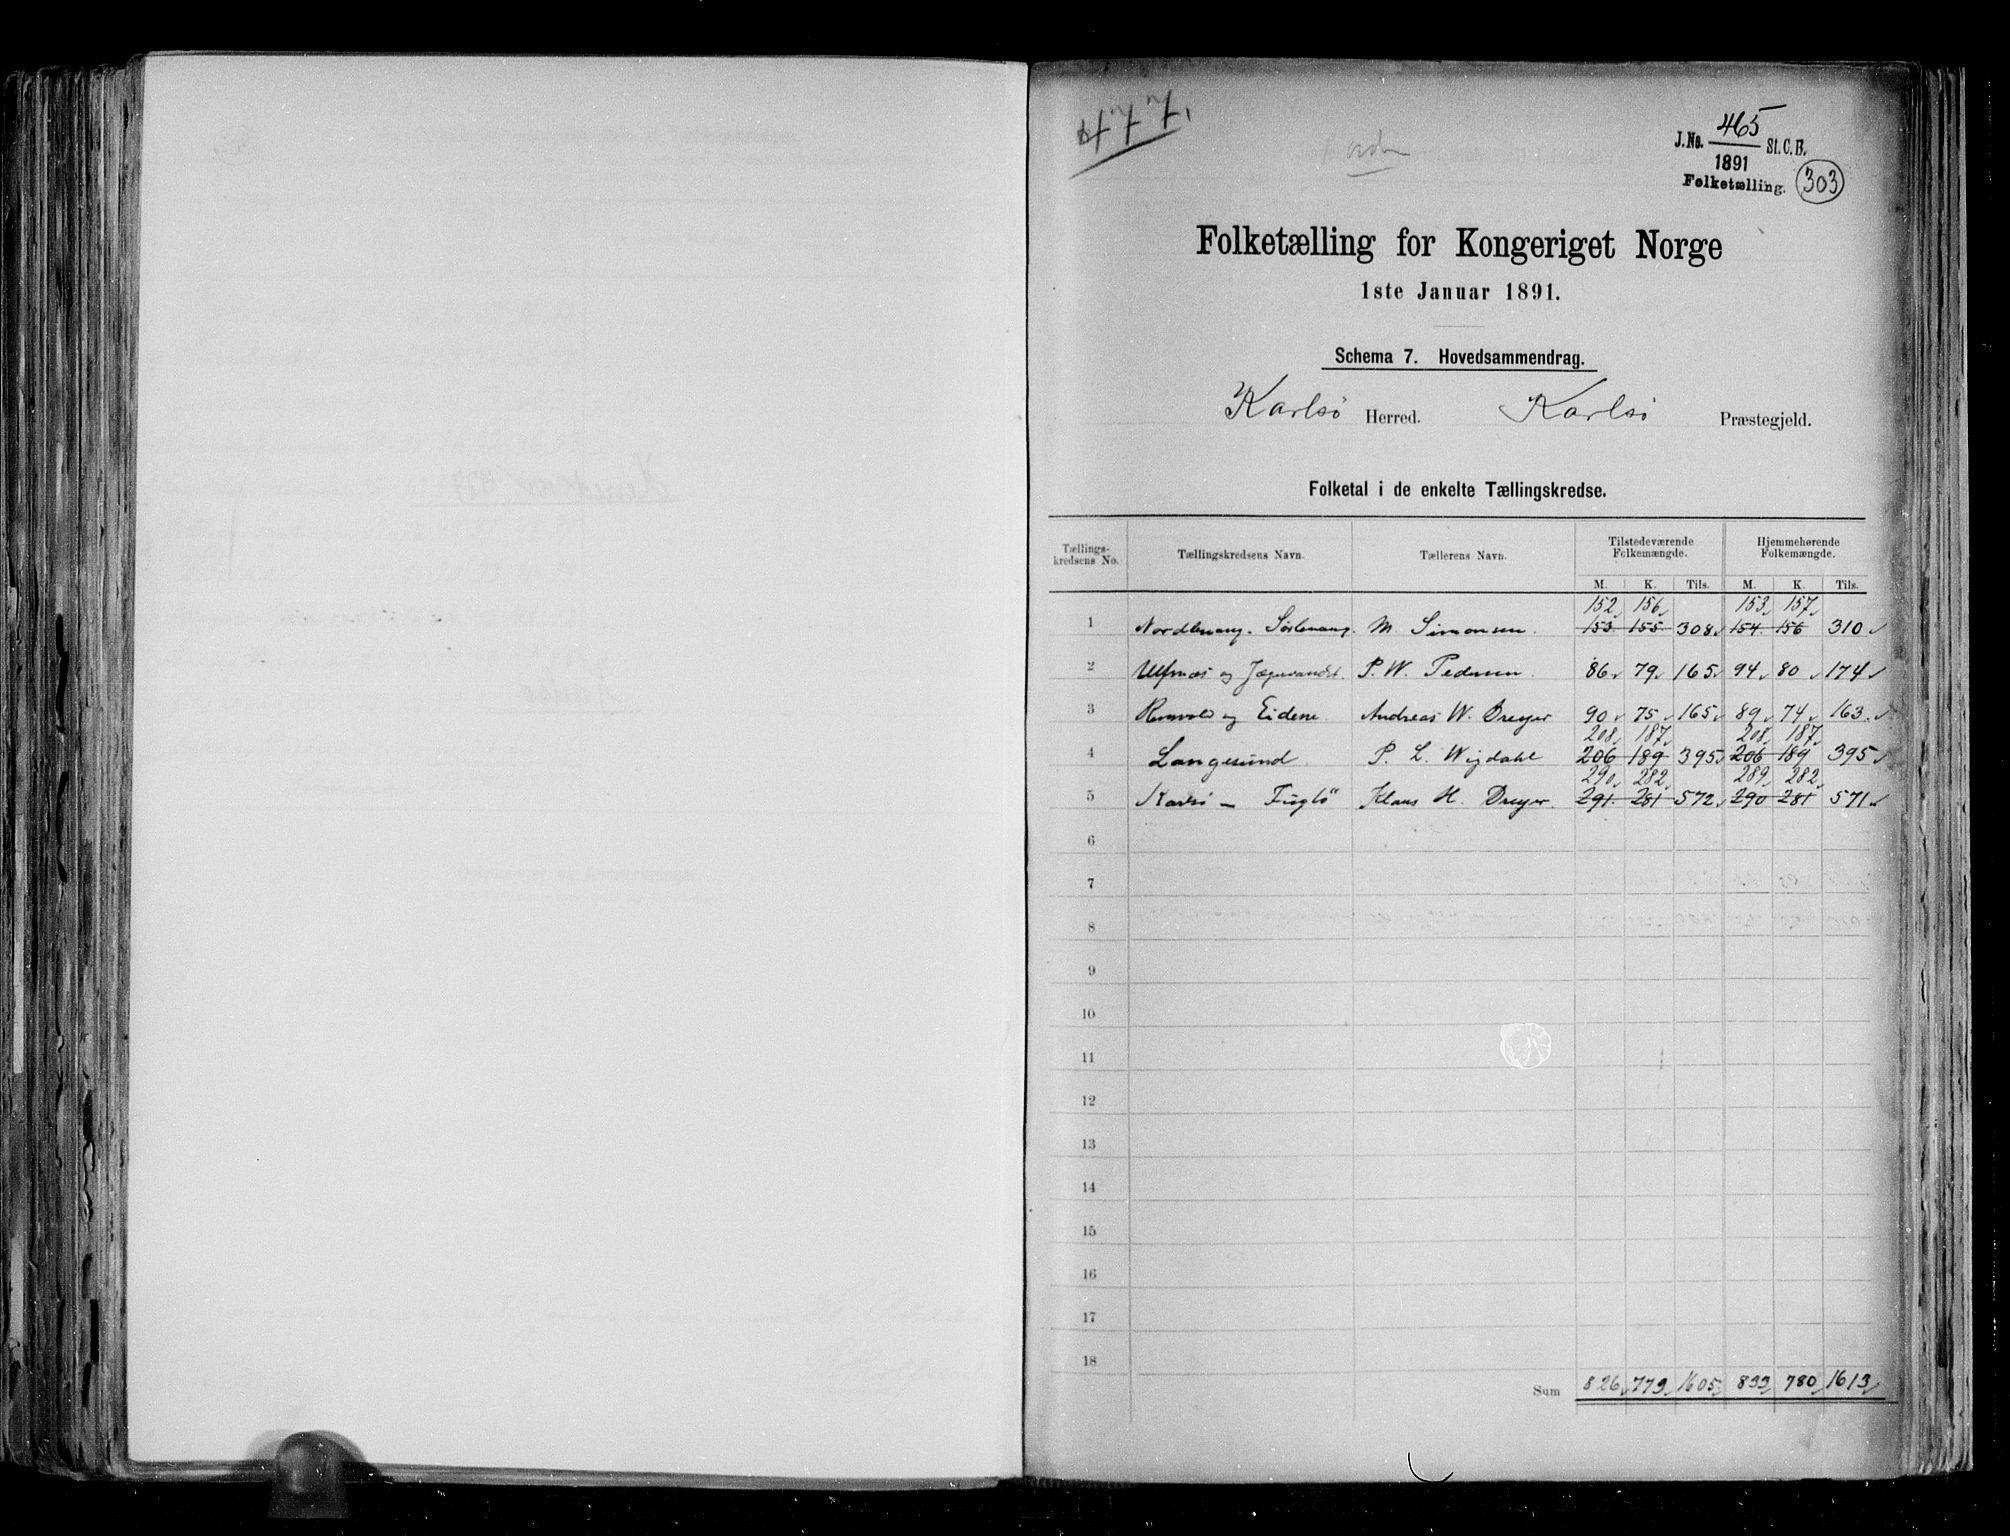 477.
J. No. 465 St. C. B.
1891
Folketælling. 303
Folketælling for Kongeriget Norge
1ste Januar 1891.
Schema 7. Hovedsammendrag.
Karlsö Herred. Karlsö Præstegjeld.
Folketal i de enkelte Tællingskredse.
Tællings-kredsens No. Tællingskredsens Navn. Tællerens Navn. Tilstedeværende Folkemængde. Hjemmehørende Folkemængde.
M. K. Tils. M. K. Tils.
152 156 153 157
1 M. Simonsen. 153 155 308 154 156 310
2 Ulfsnæs og Jægervandet. P. W. Pedersen. 86 79 165 94 80 174
3 og Eidene. Andreas W. Dreyer 90 75 165 89 74 163
208 187 208 187
4 Langesund. P. L. Wigdahl 206 189 395 206 189 395
290 282 289 282
5 Karlsö – Fuglö Klaus H. Dreyer. 291 281 572 290 281 571
6
7
8
9
10
11
12
13
14
15
16
17
18
Sum 826 779 1605 833 780 1613